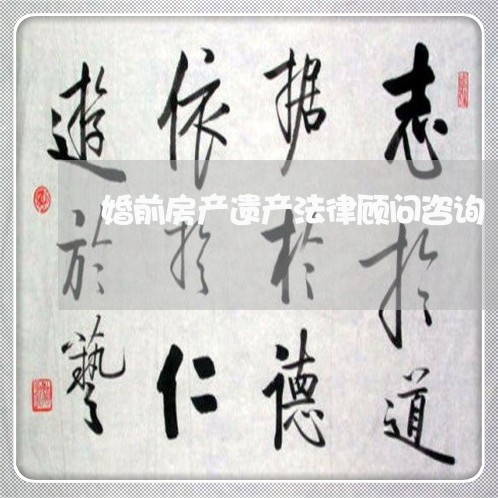 志於道
据於德
依於仁
遊於藝
婚前房产遗产法律顾问咨询